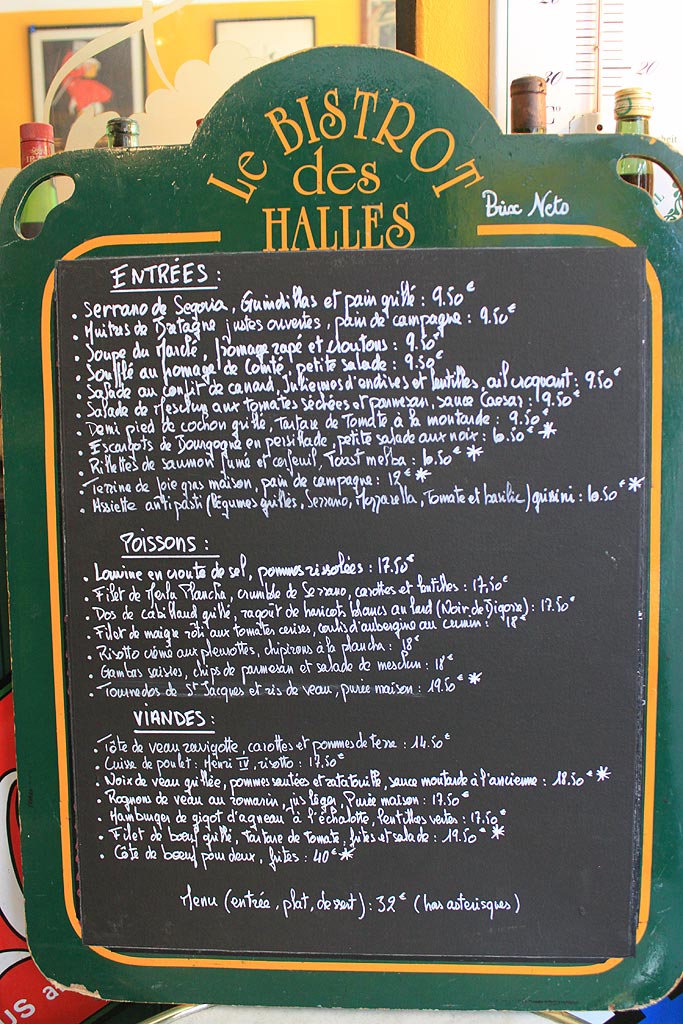 Le BISTROT
des
HALLES
Prix Neto
ENTRÉES :
. Serrano de Segovia, Guindillas et pain grillé : 9.50€
. Huitres de Bretagne justes ouvertes, pain de campagne : 9.50€
. Soupe du Marché, fromage rapé et croutons : 9.50€
. Soufflé au fromage de Comté, petite salade : 9.50€
. Salade au confit de canard, Juliennes d'endives et lentilles, ail croquant : 9.50€
. Salade de Mesclun aux tomates séchées et parmesan, sauce Caesar : 9.50€
. Demi pied de cochon grillé, Tartare de Tomate à la moutarde : 9.50€
. Escargots de Bourgogne en persillade, petite salade aux noix : 10.50€*
. Rillettes de saumon fumé et cerfeuil, Toast melba : 10.50€*
. Terrine de foie gras maison, pain de campagne : 12€*
. Assiette antipasti (légumes grillés, Serrano, Mozzarella, Tomate et basilic) grisini : 10.50€*
POISSONS :
. Louvine en croute de sel, pommes rissolées : 17.50€
. Filet de Merlu Plancha, crumble de Serrano, carottes et lentilles : 17,50€
. Dos de cabillaud grillé, ragoût de haricots blancs au lard (Noir de Bigorre) : 17.50€
. Filet de maigre rôti aux tomates cerises, coulis d'aubergine au cumin : 18€
. Risotto crémé aux pleurottes, chipirons à la plancha : 18€
. Gambas saisies, chips de parmesan et salade de mesclun : 18€
. Tournedos de St Jacques et ris de veau, purée maison : 19.50€*
VIANDES :
. Tête de veau ravigotte, carottes et pommes de terre : 14.50€
. Cuisse de poulet Henri IV, risotto : 17.50€
. Noix de veau grillée, pommes sautées et ratatouille, sauce moutarde à l'ancienne : 18.50€*
. Rognons de veau au romarin, jus léger, Purée maison : 17.50€
. Hamburger de gigot d'agneau à l'échalotte, lentilles vertes : 17.50€
. Filet de bœuf grillé, tartare de tomate, frites et salade : 19.50€*
. Côte de bœuf pour deux, frites : 40€*
Menu (entrée, plat, dessert) : 32€ (hors asterisques)
30
20
C°
US a